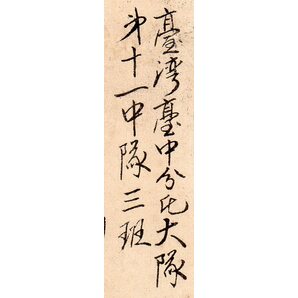 臺湾臺中分屯大隊
第十一中隊三班